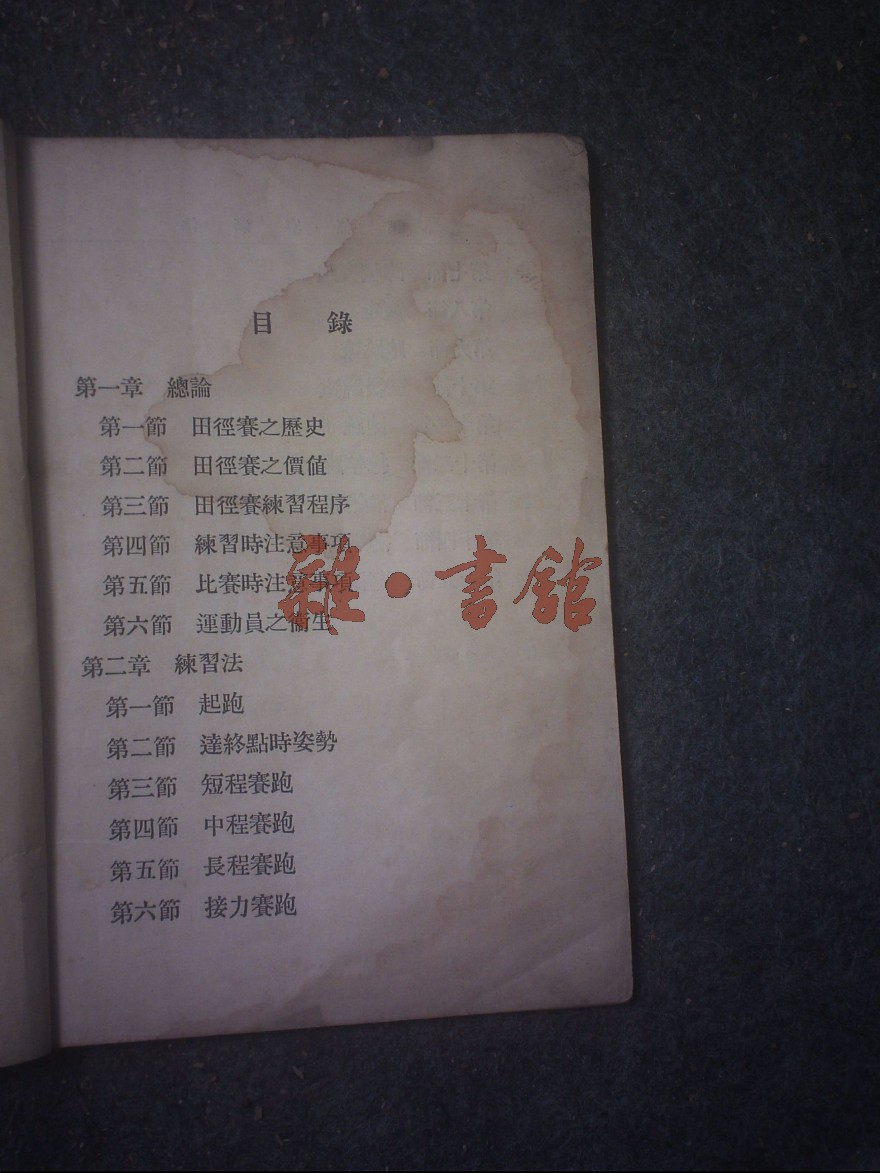 目 錄
第一章 總論
第一節 田徑賽之歷史
第二節 田徑賽之價值
第三節 田徑賽練習程序
第四節 練習時注意事項
第五節 比賽時注意事項
第六節 運動員之衞生
第二章 練習法
第一節 起跑
第二節 達終點時姿勢
第三節 短程賽跑
第四節 中程賽跑
第五節 長程賽跑
第六節 接力賽跑
雜·書館